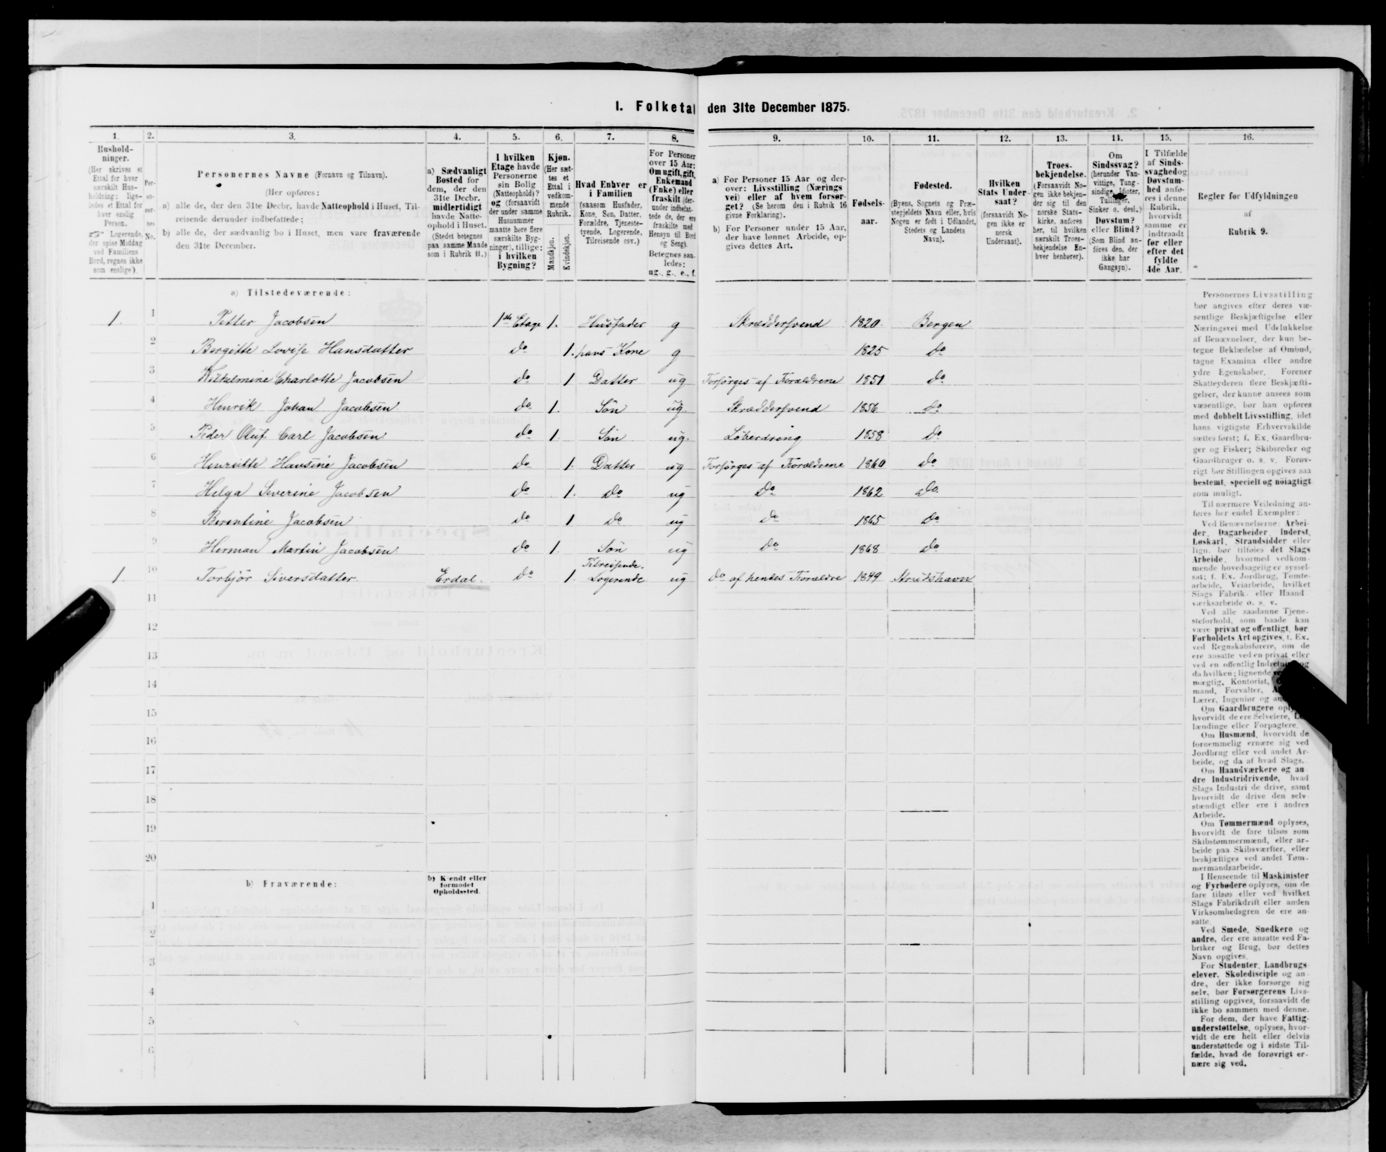 1. Folketal den 31te December 1875.
1. 2. 3. 4. 5. 6. 7. 8. 9. 10. 11. 12. 13. 14. 15. 16.
Hushold-
ninger.
(Her skrives et
Ettal for hver
særskilt Hus-
holdning; lige-
ledes et Ettal for
hver enslig
Person.
Logerende,
der spise Middag
ved Familiens
Bord, regnes ikke
som enslige).
Personernes Navne (Fornavn og Tilnavn).
(Her opføres:
a) alle de, der den 31te Decbr. havde Natteophold i Huset, Til-
reisende derunder indbefattede;
b) alle de, der sædvanlig bo i Huset, men vare fraværende
den 31te December.
a) Sædvanligt
Bosted for
dem, der den
31te Decbr.
midlertidigt
havde Natte-
ophold i Huset.
(Stedet betegnes
paa samme Maade
som i Rubrik 11.)
I hvilken
Etage havde
Personerne
sin Bolig
(Natteophold)?
og (forsaavidt
der under samme
Husnummer
maatte høre flere
særskilte Byg-
ninger), tillige:
i hvilken
Bygning?
Kjøn.
(Her sæt-
tes et
Ettal i
vedkom-
mende
Rubrik.)
Mandkjøn.
Kvindekjøn.
Hvad Enhver er
i Familien
(saasom Husfader,
Kone, Søn, Datter,
Forældre, Tjeneste-
tyende, Logerende,
Tilreisende osv.)
For Personer
over 15 Aar:
Om ugift, gift,
Enkemand
(Enke) eller
fraskilt
Betegnes saa-
ledes:
ug., g., e., f.
a) For Personer 15 Aar og der-
over: Livsstilling (Nærings
vei) eller af hvem forsør-
get? (Se herom den i Rubrik 16
givne Forklaring).
b) For Personer under 15 Aar,
der have lønnet Arbeide, op-
gives dettes Art.
Fødsels-
aar.
Fødested.
(Byens, Sognets og Præ-
stegjeldets Navn eller, hvis
Nogen er født i Udlandet,
Stedets og Landets
Navn).
Hvilken
Stats Under-
saat?
(forsaavidt No-
gen ikke er
norsk
Undersaat).
Troes-
bekjendelse.
(Forsaavidt No-
gen ikke bekjen-
der sig til den
norske Stats-
kirke, anføres
her, til hvilken
særskilt Troes-
bekjendelse En-
hver henhører).
Om
Sindssvag?
(herunder Van-
vittige, Tung-
sindige, Idioter,
Tullinger,
Sinker o. desl.)
Døvstum?
eller Blind?
(Som Blind an-
føres den, der
ikke har
Gangsyn).
I Tilfælde
af Sinds-
svaghed og
Døvstum-
hed anfø-
res i denne
Rubrik,
hvorvidt
samme er
indtraadt
før eller
efter det
fyldte
4de Aar.
Regler for Udfyldningen
af
Rubrik 9.
a) Tilstedeværende:
1. 1 Petter Jacobsen 1ste Etage 1. Husfader g Skræddersvend 1820. Bergen
2 Bergitte Lovise Hansdatter do 1. hans Kone g 1825 do
3 Wilhelmine Charlotte Jacobsen do 1 Datter ug Forsørges af Forældrene 1851 do
4 Henrik Johan Jacobsen do 1. Søn ug. Skræddersvend 1856 do
5 Peder Oluf Carl Jacobsen do 1. Søn ug. Løberdreng 1858 do
6 Henriette Hansine Jacobsen do 1. Datter ug Forsørges af Forældrene 1860 do
7 Helga Severine Jacobsen do 1. do ug do 1862 do
8 Berentine Jacobsen do 1 do ug do 1865 do
9 Herman Martin Jacobsen do 1. Søn ug do 1868 do
1. 10 Torbjør Siversdatter Erdal. do 1 Tilreisende. Logerende ug do af hendes Forældre 1849 Strudshavn
11
12
13
14
15
16
17
18
19
20
b) Fraværende:
b) Kjendt eller
formodet
Opholdssted.
1
2
3
4
5
6
Personernes Livsstilling
bør angives efter deres væ-
sentlige Beskjæftigelse eller
Næringsvei med Udelukkelse
af Benævnelser, der kun be-
tegne Beklædelse af Ombud,
tagne Examina eller andre
ydre Egenskaber. Forener
Skatteyderen flere Beskjæfti-
gelser, der kunne ansees som
væsentlige, bør han opføres
med dobbelt Livsstilling, idet
hans vigtigste Erhvervskilde
sættes først; f. Ex. Gaardbru-
ger og Fisker; Skibsreder og
Gaardbruger o. s. v. Forøv-
rigt bør Stillingen opgives saa
bestemt, specielt og nøiagtigt
som muligt.
Til nærmere Veiledning an-
føres her endel Exempler:
Ved Benævnelserne: Arbei-
der, Dagarbeider, Inderst,
Løskarl, Strandsidder eller
lign. bør tilføies det Slags
Arbeide, hvormed vedkom-
mende hovedsagelig er syssel-
sat; f. Ex. Jordbrug, Tomte-
arbeide, Veiarbeide, hvilket
Slags Fabrik- eller Haand-
værksarbeide o. s. v.
Ved alle saadanne Tjene-
steforhold, som baade kan
være privat og offentligt, bør
Forholdets Art opgives, f. Ex.
ved Regnskabsførere, om de
ere ansatte ved en privat eller
ved en offentlig Indretning og
da hvilken; lignende ved
mægtig, Kontorist,
mand, Forvalter,
Lærer, Ingeniør og
Om Gaardbrugere oplyses,
hvorvidt de ere Selveiere,
lændinge eller Forpagtere.
Om Husmænd, hvorvidt de
fornemmelig ernære sig ved
Jordbrug eller ved andet Ar-
beide, og da af hvad Slags.
Om Haandværkere og an-
dre Industridrivende, hvad
Slags Industri de drive, samt
hvorvidt de drive den selv-
stændigt eller ere i andres
Arbeide.
Om Tømmermænd oplyses,
hvorvidt de fare tilsøs som
Skibstømmermænd, eller ar-
beide paa Skibsværfter, eller
beskjæftiges ved andet Tøm-
mermandsarbeide.
I Henseende til Maskinister
og Fyrbødere oplyses, om de
fare tilsøs eller ved hvilket
Slags Fabrikdrift eller anden
Virksomhed de ere an-
satte.
Ved Smede, Snedkere og
andre, der ere ansatte ved Fa-
briker og Brug, bør dettes
Navn opgives.
For Studenter, Landbrugs-
elever, Skoledisciple og an-
dre, der ikke forsørge sig
selv, bør Forsørgerens Livs-
stilling opgives, forsaavidt de
ikke bo sammen med denne.
For dem, der have Fattig-
understøttelse, oplyses, hvor-
vidt de ere helt eller delvis
understøttede og i sidste Til-
fælde, hvad de forøvrigt er-
nære sig ved.